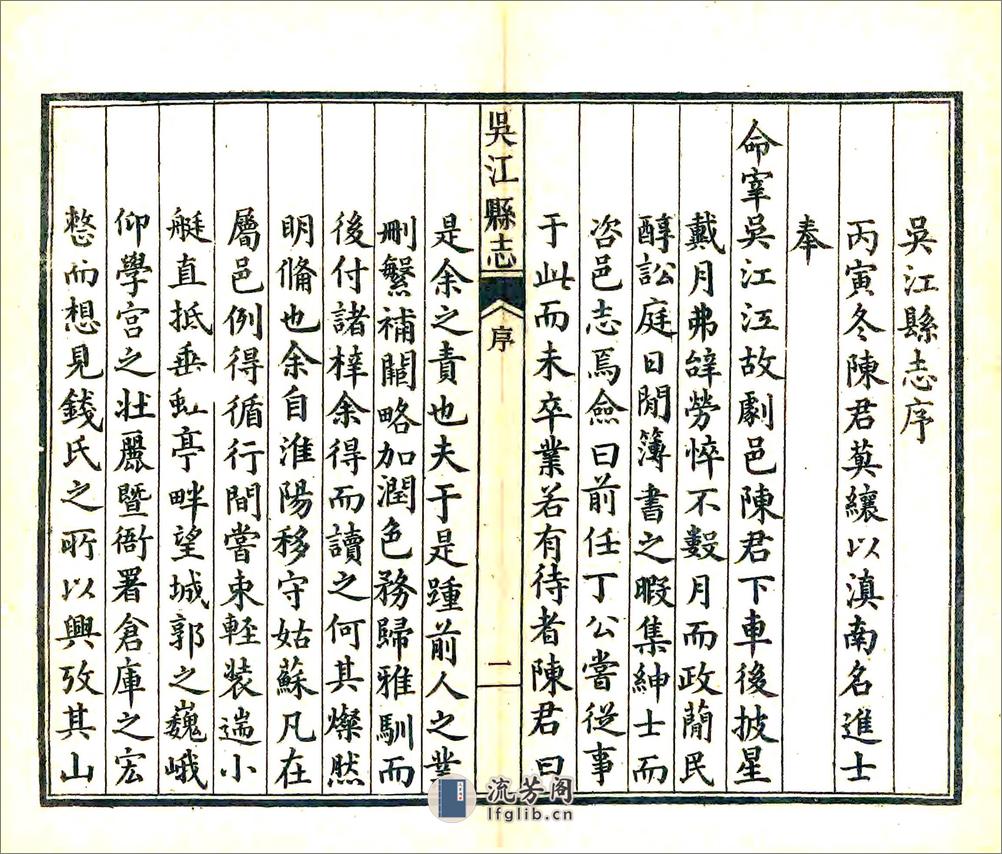 吳江縣志序
丙寅冬陳君蓂纕以滇南名進士
奉
命宰吳江江故劇邑陳君下車後披星
戴月弗辝勞悴不數月而政蕳民
醇訟庭日閒簿書之暇集紳士而
咨邑志焉僉曰前任丁公嘗從事
于此而未卒業若有待者陳君曰
吳江縣志
序
一
是余之責也夫于是踵前人之業
刪繁補闕略加潤色務歸雅馴而
後付諸梓余得而讀之何其燦然
明脩也余自淮陽移守姑蘇凡在
屬邑例得循行間嘗束輕裝遄小
艇直抵垂虹亭畔望城郭之巍峨
仰學宮之壯麗暨衙署倉庫之宏
整而想見錢氏之所以興攷其山
流芳阁
lfglib.cn